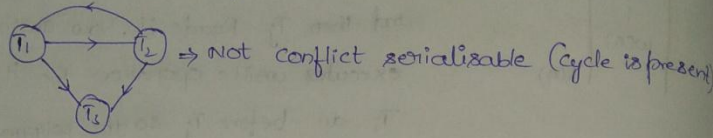 T1
T2 ⇒ Not conflict serialisable (cycle is present)
T3